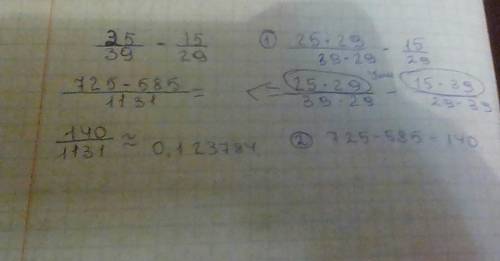 25/39 - 15/29
① 25·29/39·29 - 15/29
725-585/1131 = ← 25·29/39·29 - 15·39/29·39
140/1131 ≈ 0,123784
② 725-585=140